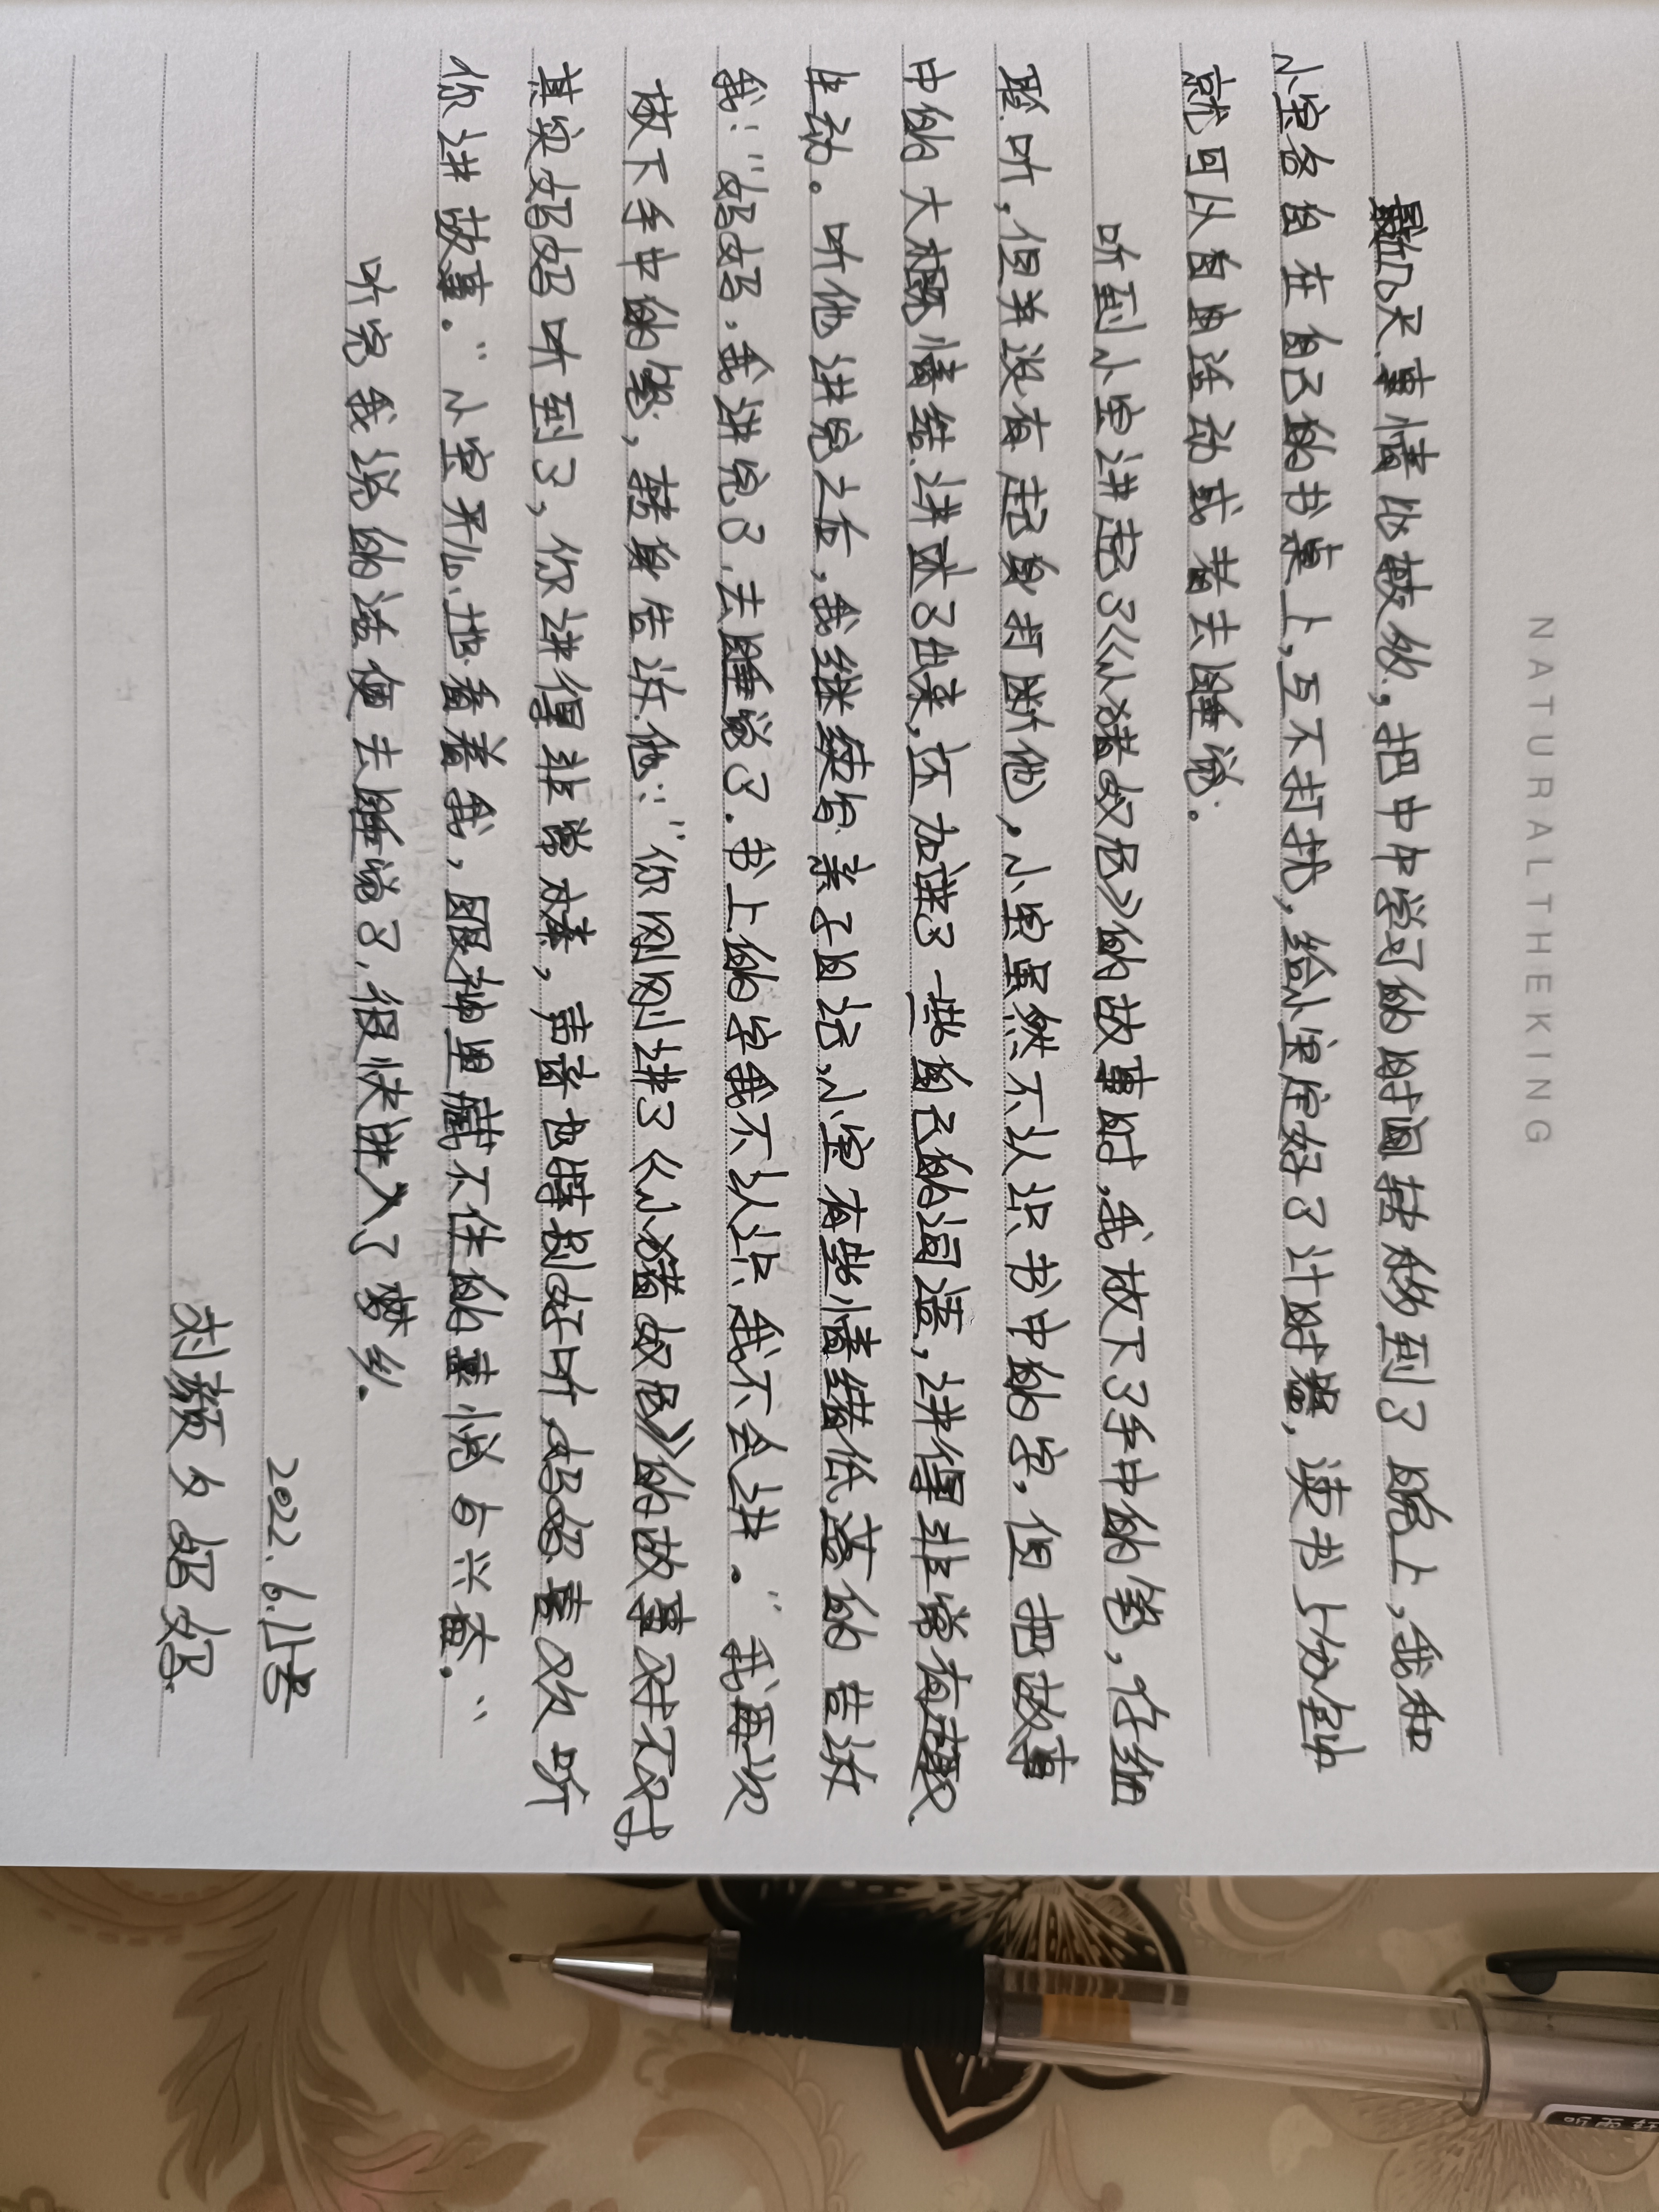 NATURALTHEKING
最几天事情比较多,把中中学习的时间转移到了晚上,我和
小宝各自在自己的书桌上,互不打扰,给小宝定好了计时器,读书十分钟
就可以自由活动或者去睡觉.
听到小宝讲起了《小猪奴尼》的故事时,我放下了手中的笔,仔细
聆听,但并没有起身打断他,小宝虽然不认识书中的字,但把故事
中的大概情结讲述了出来,还加进了一些自己的词语,讲得非常有趣、
生动。听他讲完之后,我继续写亲子日记,小宝有些情绪低落的告诉
我:"妈妈,我讲完了,去睡觉了.书上的字我不认识,我不会讲。"我再次
放下手中的笔,转身告诉他:"你刚刚讲了《小猪奴尼》的故事对不对,
其实妈妈听到了,你讲得非常棒,声音也特别好听,妈妈喜欢听
你讲故事."小宝开心地看着我,眼神里藏不住的喜悦与兴奋."
听完我说的话便去睡觉了,很快进入了梦乡.
2022.6.
妈妈.
听雨轩